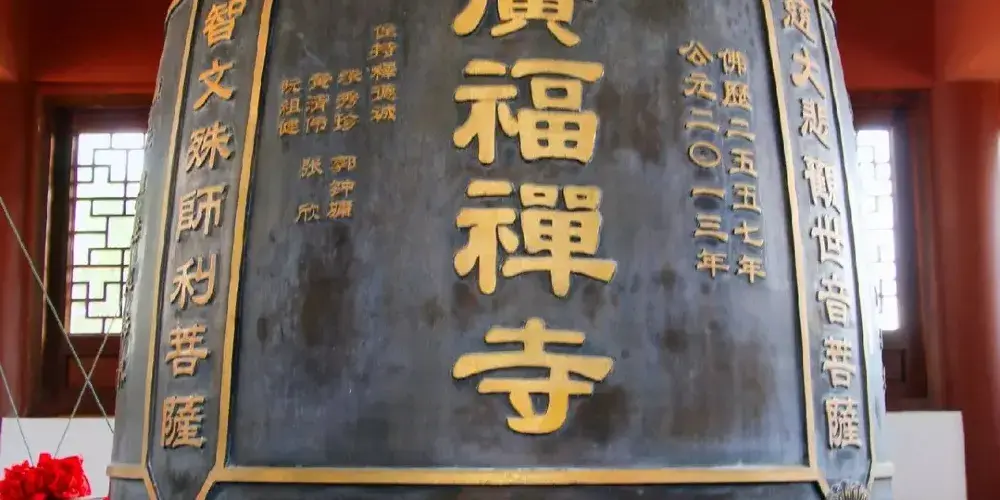 大悲觀世音菩薩
佛歷二五五七年
公元二〇一三年
廣福禪寺
住持釋誠
張秀珍 郭
黃清偉 张欣
阮祖健
智文殊師利菩薩